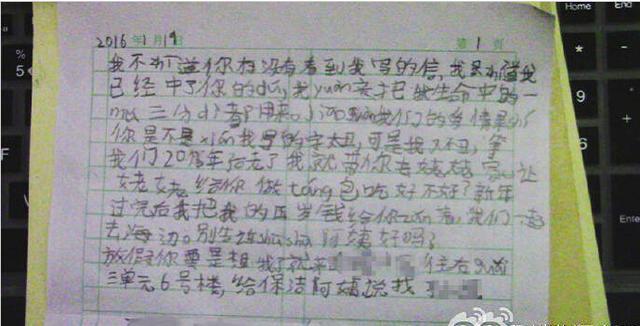 2016年1月14 第1页
我不知道你有没有看到我写的信,我只知道我
已经中了你的du,我yuan意把我生命中的
三分 都用来
你是不是xian我写的字太丑,可是我不丑,等
我们20多年后老了我就带你去姥姥家,让
姥姥给你做tang包吃好不好?新年
过完后我把我的压岁钱给你 着,我们一起
去海边。别告诉 阿姨好吗?
放假你要是想我了就来 往右guai
三单元6号楼,给保洁阿姨说找